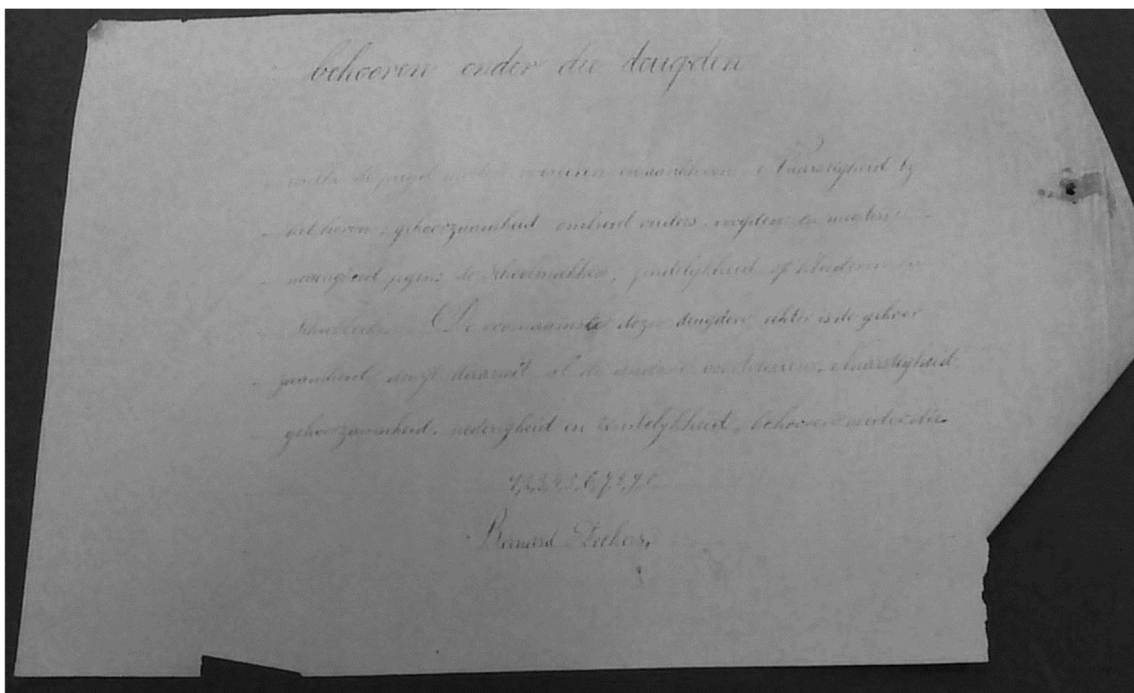 behooren onder die deugden
welke de jeugd moeten versieren. Naarstigheid by
het leeren, gehoorzaamheid omtrent ouders, voogden en meesters
nedrigheid jegens de Schoolmakkers, zindelykheid op kinderen en
De voornaamste dezer deugden echter is de gehoor
zaamheid daar uit al de andere voortvloeien. Naarstigheid,
gehoorzaamheid, nederigheid en zindelykheid, behooren onder die
1,2,3,4,5,6,7,8,9,0
Bernard Deckers,